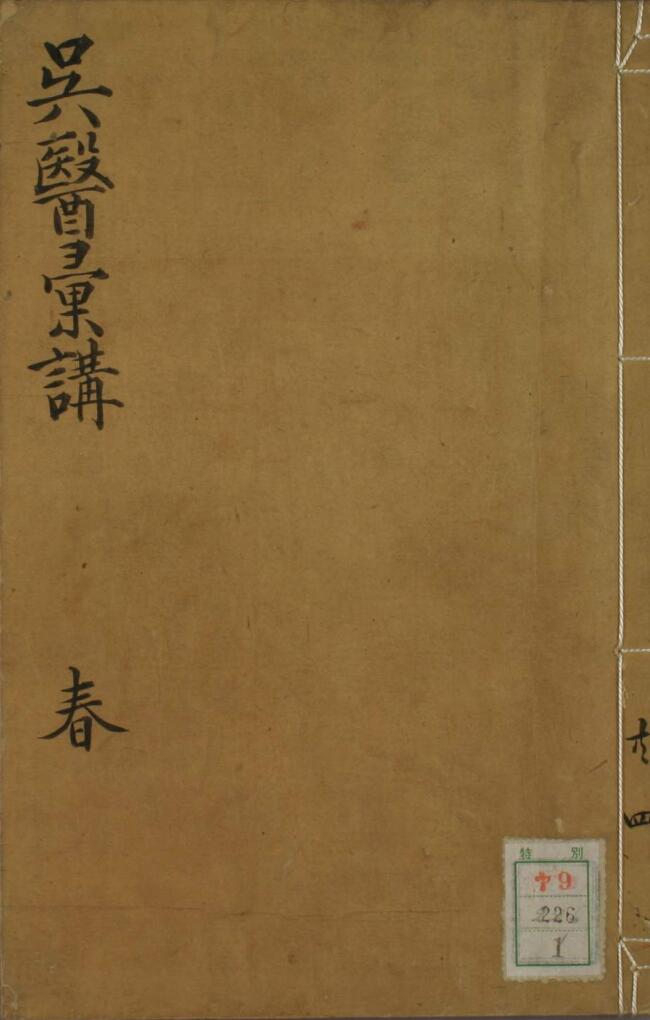 吳醫彙講
春
共四
特別
ヤ9
226
1